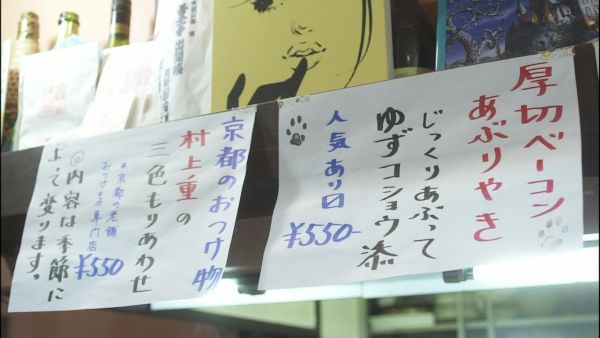 厚切ベーコン
あぶりやき
じっくりあぶって
ゆずコショウ添
人気あり
¥550-
京都のおつけ物
村上重の
三色もりあわせ
京都の老舗
おつけもの専門店
¥550
@内容は季節に
よって変ります。